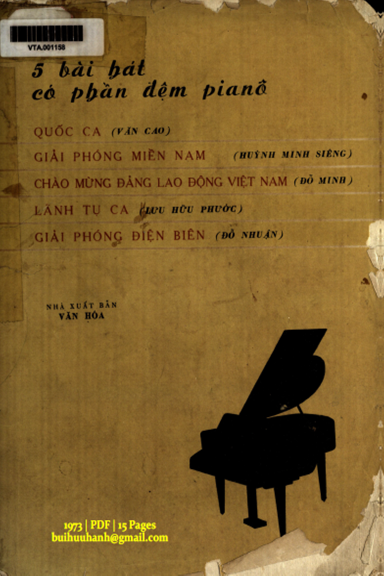 VTA.001158
5 bài hát
có phần đệm pianô
QUỐC CA (VĂN CAO)
GIẢI PHÓNG MIỀN NAM (HUỲNH MINH SIÊNG)
CHÀO MỪNG ĐẢNG LAO ĐỘNG VIỆT NAM (ĐỖ MINH)
LÃNH TỤ CA (LƯU HỮU PHƯỚC)
GIẢI PHÓNG ĐIỆN BIÊN (ĐỖ NHUẬN)
NHÀ XUẤT BẢN
VĂN HÓA
1973 | PDF | 15 Pages
buihuuhanh@gmail.com